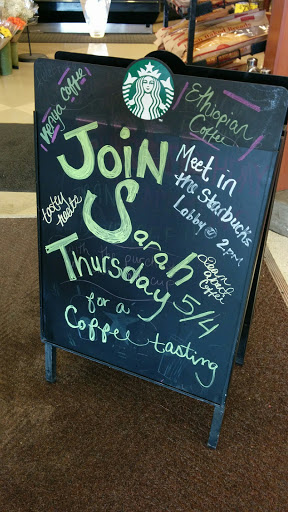 Kenya Coffee
Ethiopian
Coffee
JOIN
Sarah
Thursday 5/4
for a
Coffee tasting
Meet in
the Starbuck's
Lobby @ 2pm
Learn
about
Coffee
tasty
treats